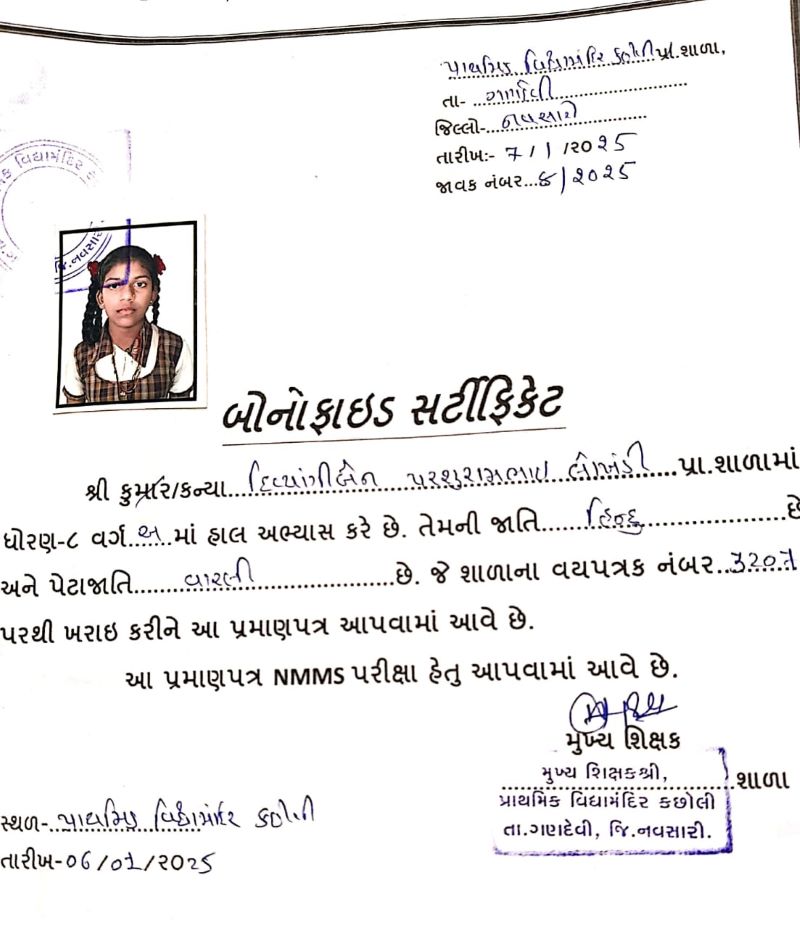 પ્રાથમિક વિદ્યામંદિર કછોલી પ્રા.શાળા,
તા- ગણદેવી
જિલ્લો- નવસારી
તારીખ:- 7/1/૨૦૨5
જાવક નંબર...8/2025
ક વિદ્યામંદિર
જિ.નવસારી
બોનોફાઇડ સર્ટીફિકેટ
શ્રી કુમાર/કન્યા....દિવ્યાંગીબેન પરશુરામભાઇ લોખંડી....પ્રા.શાળામાં
ધોરણ-૮ વર્ગ..અ..માં હાલ અભ્યાસ કરે છે. તેમની જાતિ......હિન્દુ..................છે
અને પેટાજાતિ........વારલી....................છે. જે શાળાના વયપત્રક નંબર..3207
પરથી ખરાઇ કરીને આ પ્રમાણપત્ર આપવામાં આવે છે.
આ પ્રમાણપત્ર NMMS પરીક્ષા હેતુ આપવામાં આવે છે.
મુખ્ય શિક્ષક
મુખ્ય શિક્ષકશ્રી,
..............................શાળા
પ્રાથમિક વિદ્યામંદિર કછોલી
તા.ગણદેવી, જિ.નવસારી.
સ્થળ-..પ્રાથમિક વિદ્યામંદિર કછોલી
તારીખ-06/01/૨૦૨5